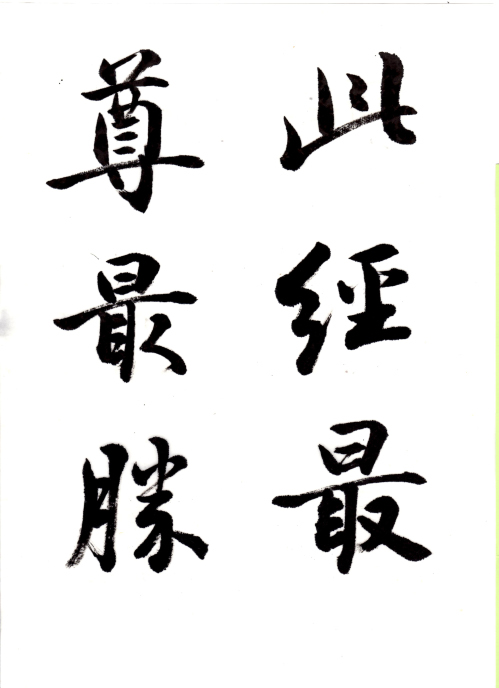 此經最
尊最勝